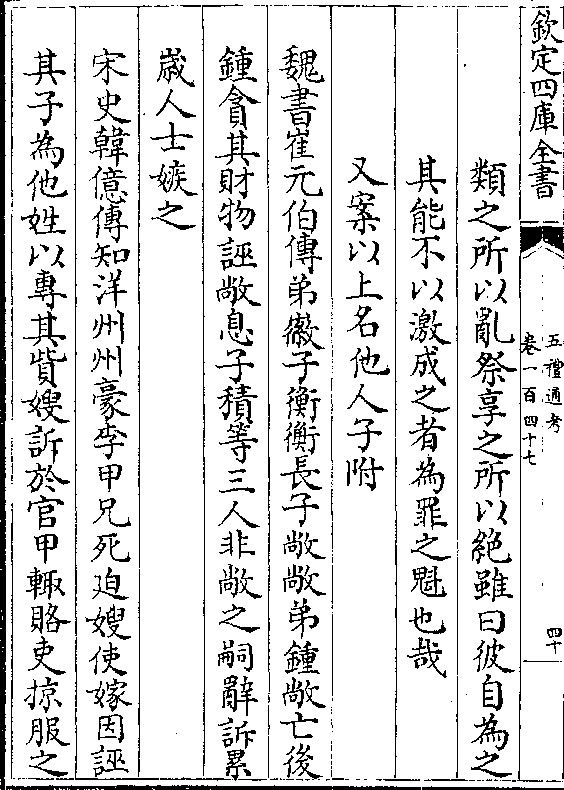 欽定四庫全書
五禮通考
卷一百四十七
四十
類之所以亂祭享之所以絶雖曰彼自為之
其能不以激成之者為罪之魁也哉
又案以上名他人子附
魏書崔元伯傳弟徽子衡衡長子敞敞弟鍾敞亡後
鍾貪其財物誣敞息子積等三人非敞之嗣辭訴累
嵗人士嫉之
宋史韓億傳知洋州州豪李甲兄死廹嫂使嫁因誣
其子為他姓以專其貲嫂訴於官甲輙賂吏掠服之